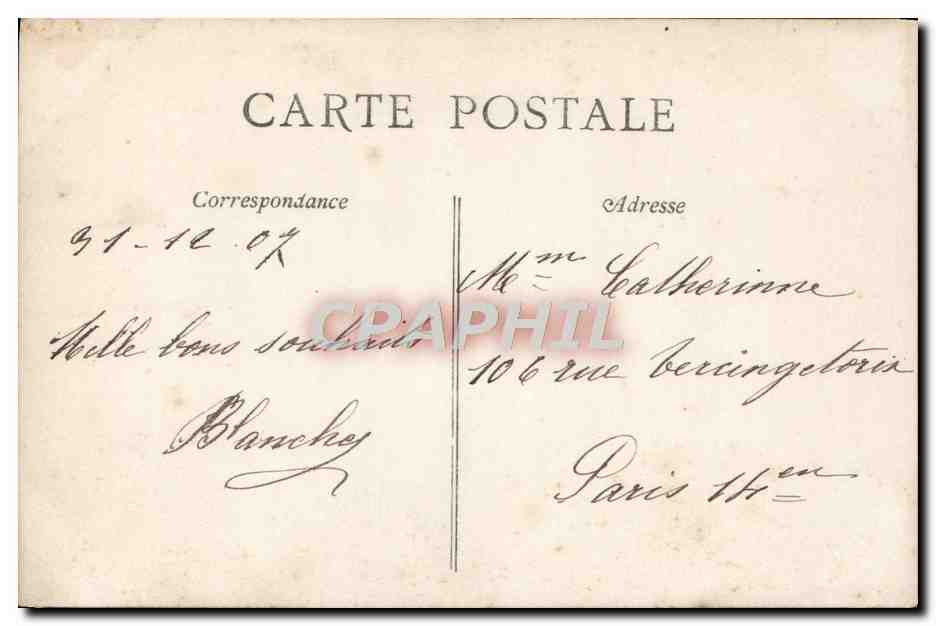 CARTE POSTALE
Correspondance
31-12.07
Mille bons souhaits
Blanche
Adresse
Mem Catherinne
106 rue Vercingetorix
Paris 14en
CPAPHIL